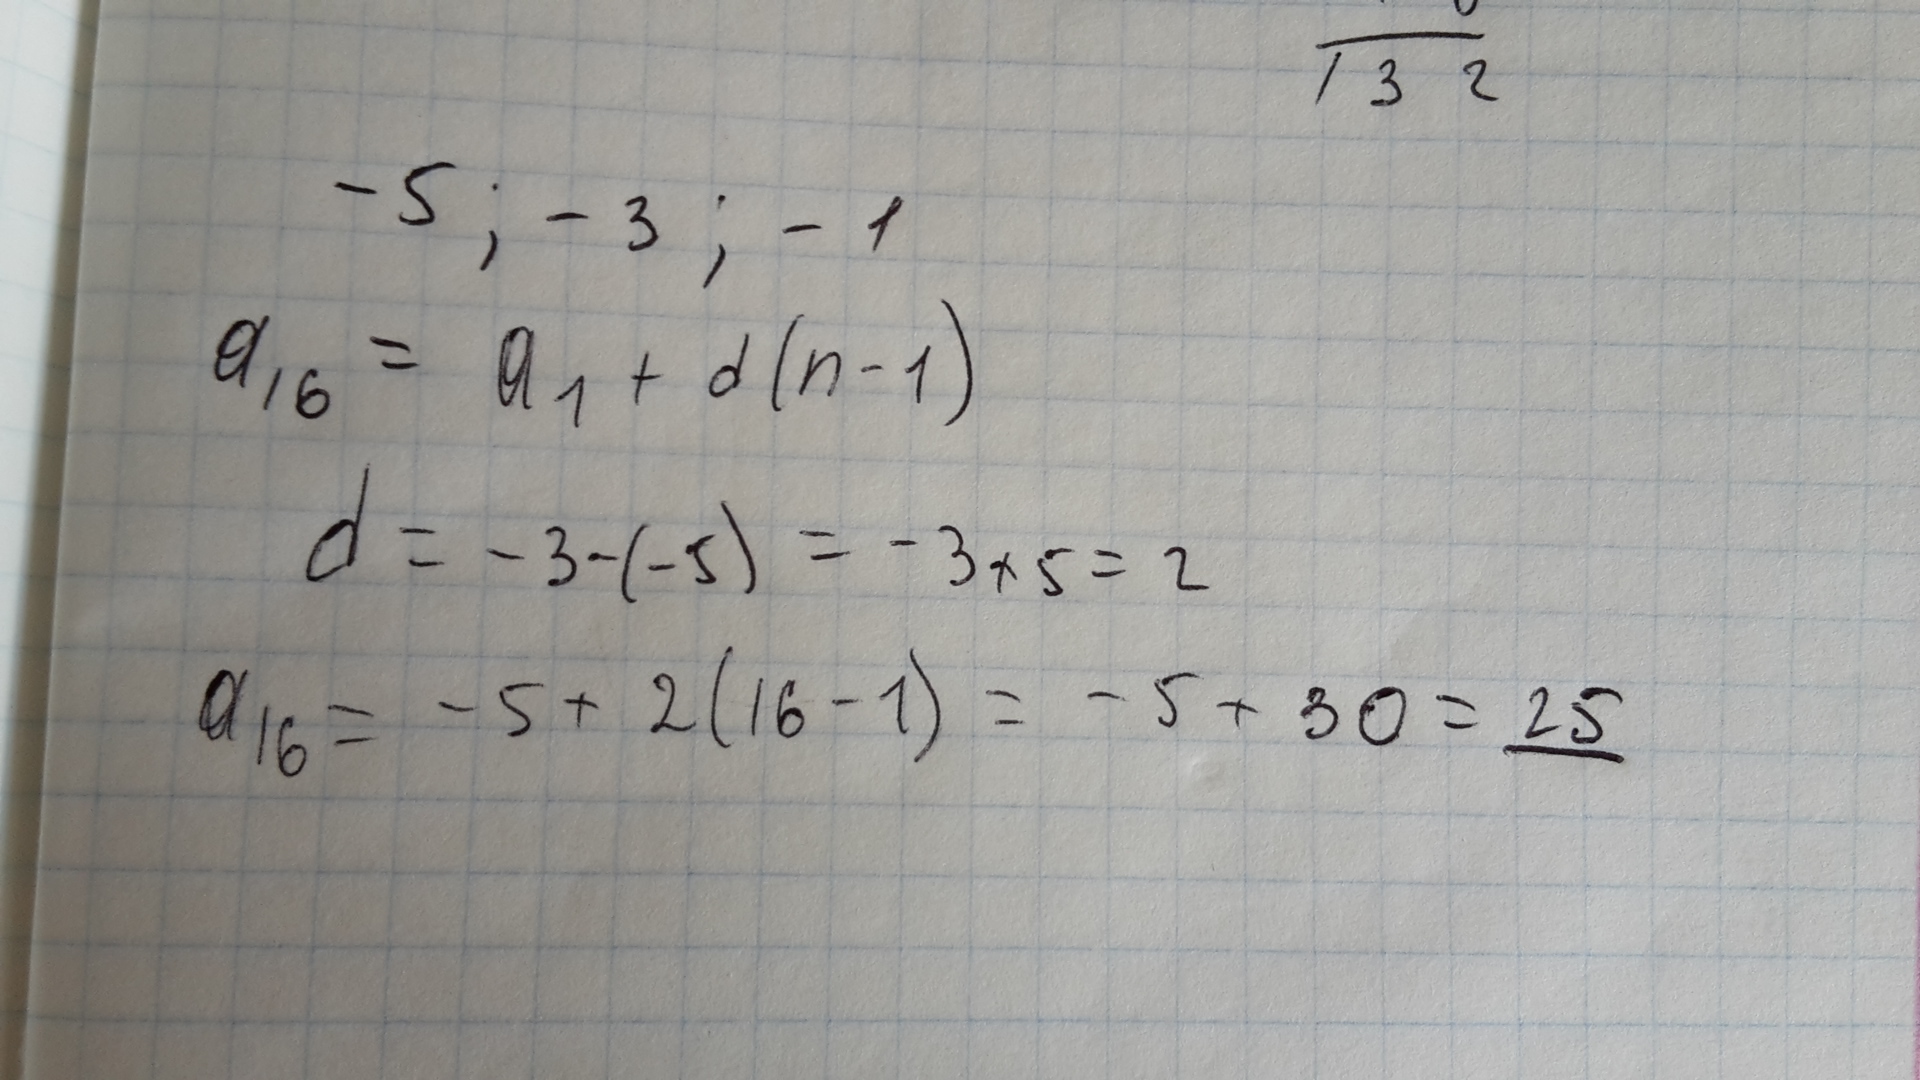 132
-5; -3; -1
a₁₆ = a₁ + d(n-1)
d = -3-(-5) = -3+5=2
a₁₆= -5+ 2(16-1) = -5+30= 25